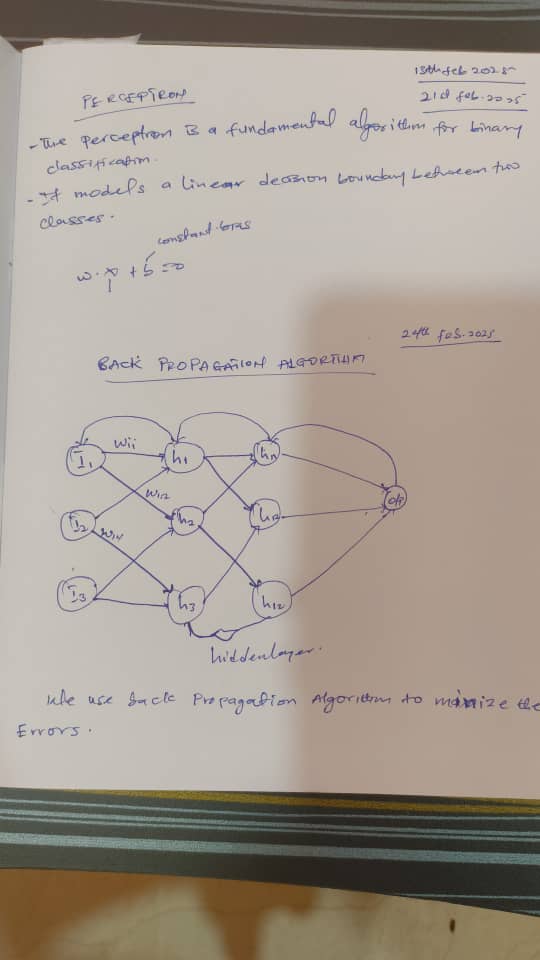 15th feb 2025
PERCEPTRON
21st feb.2025
- The perceptron is a fundamental algorithm for binary
classification.
- It models a linear decision boundary between two
classes.
constant bias
w.x + b =0
24th feb.2025
BACK PROPAGATION ALGORITHM
I1 w11 h1 h11
w12
I2 h2 h12 O/P
w14
I3 h3 h12
hidden layer.
We use back Propagation Algorithm to minize the
Errors.